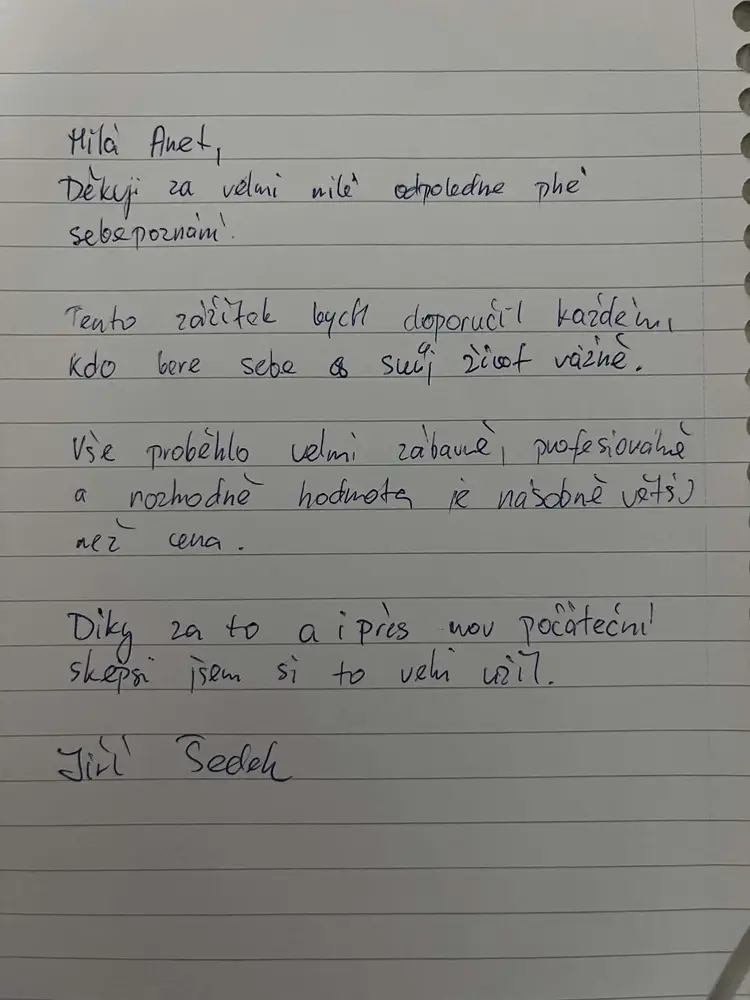 Milá Anet,
Děkuji za velmi milé odpoledne plné
sebepoznání.
Tento zážitek bych doporučil každému,
kdo bere sebe a svůj život vážně.
Vše proběhlo velmi zábavně, profesionálně
a rozhodně hodnota je násobně větší
než cena.
Díky za to a i přes mou počáteční
skepsi jsem si to velmi užil.
Jiří Šedek